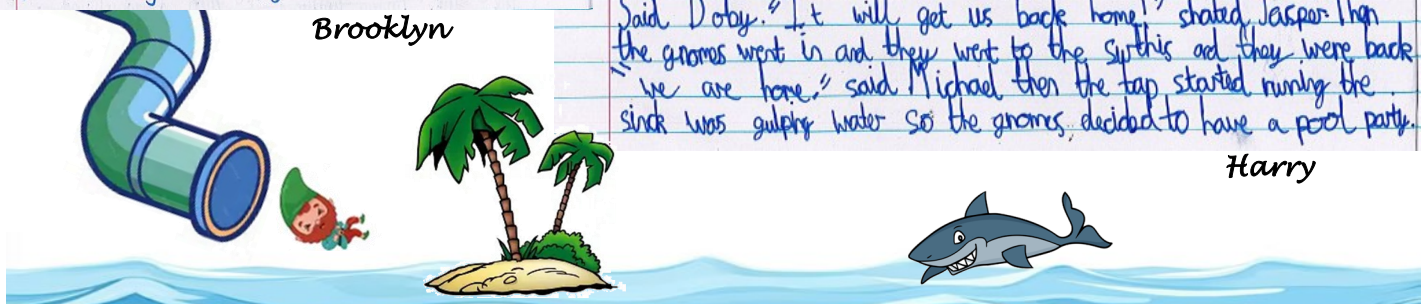 Brooklyn
Said Doby." It will get us back home!" shated Jasper. Then
the gnomes went in and they went to the surthis and they were back
"we are home." said Michael then the tap started runing the
sinck was gulphg water so the gnomes decided to have a pool party.
Harry